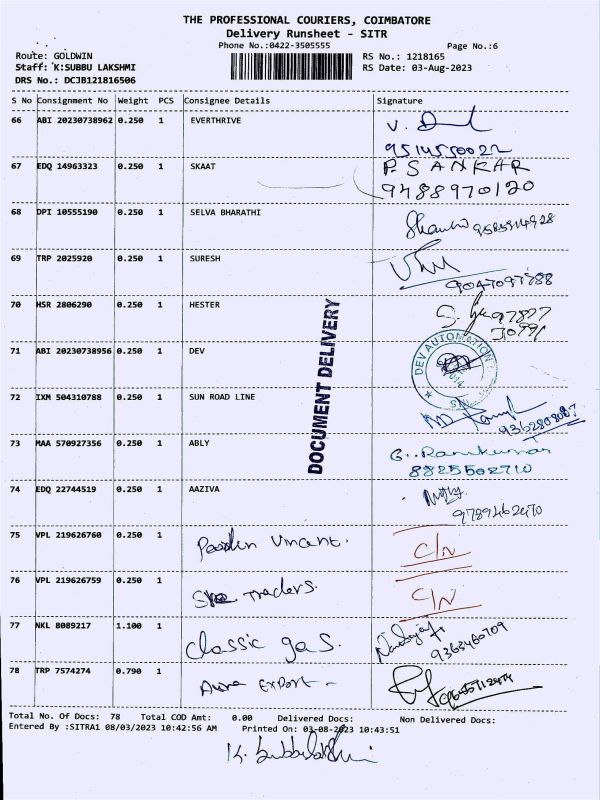 THE PROFESSIONAL COURIERS, COIMBATORE
Delivery Runsheet - SITR
Phone No.:0422-3505555 Page No.:6
Route: GOLDWIN RS No.: 1218165
Staff: K:SUBBU LAKSHMI RS Date: 03-Aug-2023
DRS No.: DCJB121816506
S No Consignment No Weight PCS Consignee Details Signature
66 ABI 20230738962 0.250 1 EVERTHRIVE
9514550022
67 EDQ 14963323 0.250 1 SKAAT P.SANKAR
9488970120
68 DPI 10555190 0.250 1 SELVA BHARATHI
69 TRP 2025920 0.250 1 SURESH
70 HSR 2806290 0.250 1 HESTER
DOCUMENT DELIVERY
71 ABI 20230738956 0.250 1 DEV DEV AUTOMATION
72 IXM 504310788 0.250 1 SUN ROAD LINE
9362808087
73 MAA 570927356 0.250 1 ABLY G. Ramkumar
8825502710
74 EDQ 22744519 0.250 1 AAZIVA
9789462470
75 VPL 219626760 0.250 1 Vincent. C/N
76 VPL 219626759 0.250 1 Traders. C/N
77 NKL 8089217 1.100 1 Classic gas.
9363460709
78 TRP 7574274 0.790 1 Aura Export -
Total No. Of Docs: 78 Total COD Amt: 0.00 Delivered Docs: Non Delivered Docs:
Entered By :SITRA1 08/03/2023 10:42:56 AM Printed On: 03-08-2023 10:43:51
K. Subbulakshmi